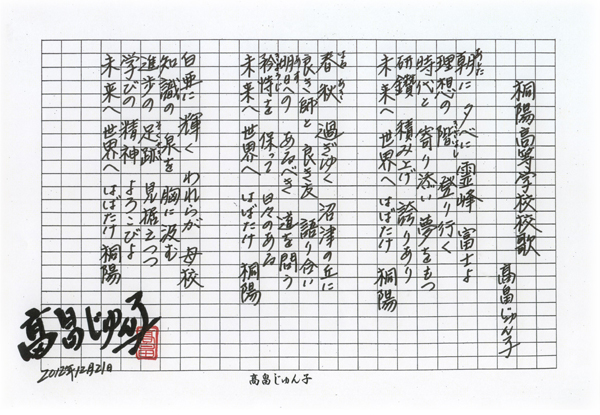 桐陽高等学校校歌
高畠じゅん子
朝に 夕べに 霊峰 富士よ
理想の 階 登り行く
時代と 寄り添い 夢をもつ
研鑽 積み上げ 誇りあり
未来へ 世界へ はばたけ 桐陽
春秋 過ぎゆく 沼津の丘に
良き師と 良き友 語り合い
明日への あるべき 道を問う
矜恃を 保って 日々のある
未来へ 世界へ はばたけ 桐陽
白亜に 輝く われらが 母校
知識の 泉を 胸に汲む
進歩の 足跡 見据えつつ
学びの 精神 よろこびよ
未来へ 世界へ はばたけ 桐陽
高畠じゅん子
2012年12月21日
高畠じゅん子